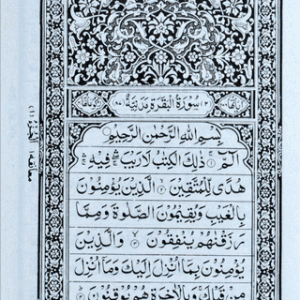 سورة البقرة مدنية
بسم الله الرحمن الرحيم
الٓمّٓ ذلك الكتب لا ريب فيه
هدى للمتقين الذين يؤمنون
بالغيب ويقيمون الصلوة ومما
رزقنهم ينفقون والذين
يؤمنون بما انزل اليك وما انزل
من قبلك وبالاخرة هم يوقنون